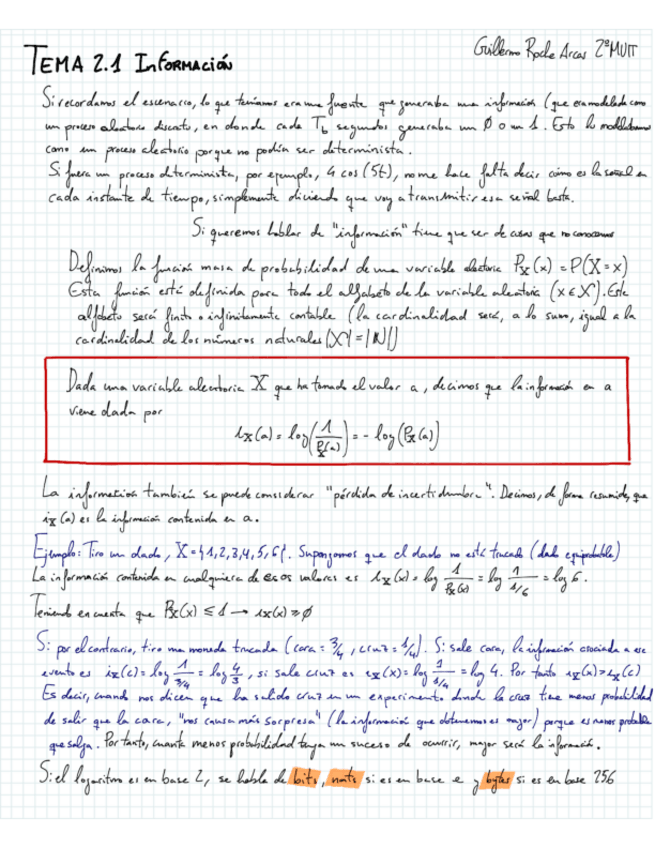 Guillermo Roche Arcas 2º MUIT
TEMA 2.1 INFORMACIÓN
Si recordamos el escenario, lo que teníamos era una fuente que generaba una información (que era modelada como
un proceso aleatorio discreto, en donde cada T_b segundos generaba un 0 o un 1. Esto lo modelábamos
como un proceso aleatorio porque no podía ser determinista.
Si fuera un proceso determinista, por ejemplo, 4 cos (5t), no me hace falta decir cómo es la señal en
cada instante de tiempo, simplemente diciendo que voy a transmitir esa señal basta.
Si queremos hablar de "información" tiene que ser de cosas que no conocemos
Definimos la función masa de probabilidad de una variable aleatoria P_X(x) = P(X=x)
Esta función está definida para todo el alfabeto de la variable aleatoria (x ∈ X). Este
alfabeto será finito o infinitamente contable (la cardinalidad será, a lo sumo, igual a la
cardinalidad de los números naturales |X| = |N|)
Dada una variable aleatoria X que ha tomado el valor a, decimos que la información en a
viene dada por
i_X(a) = log(1/P_X(a)) = - log(P_X(a))
La información también se puede considerar "pérdida de incertidumbre". Decimos, de forma resumida, que
i_X(a) es la información contenida en a.
Ejemplo: Tiro un dado, X = {1,2,3,4,5,6}. Supongamos que el dado no está trucado (dado equiprobable)
La información contenida en cualquiera de esos valores es i_X(x) = log 1/P_X(x) = log 1/1/6 = log 6.
Teniendo en cuenta que P_X(x) ≤ 1 → i_X(x) ≥ 0
Si por el contrario, tiro una moneda trucada (cara = 3/4, cruz = 1/4). Si sale cara, la información asociada a ese
evento es i_X(c) = log 1/3/4 = log 4/3, si sale cruz es i_X(x) = log 1/1/4 = log 4. Por tanto i_X(x) > i_X(c)
Es decir, cuando nos dicen que ha salido cruz en un experimento donde la cruz tiene menos probabilidad
de salir que la cara, "nos causa más sorpresa" (la información que obtenemos es mayor) porque es menos probable
que salga. Por tanto, cuanta menos probabilidad tenga un suceso de ocurrir, mayor será la información.
Si el logaritmo es en base 2, se habla de bits, nats si es en base e y bytes si es en base 256